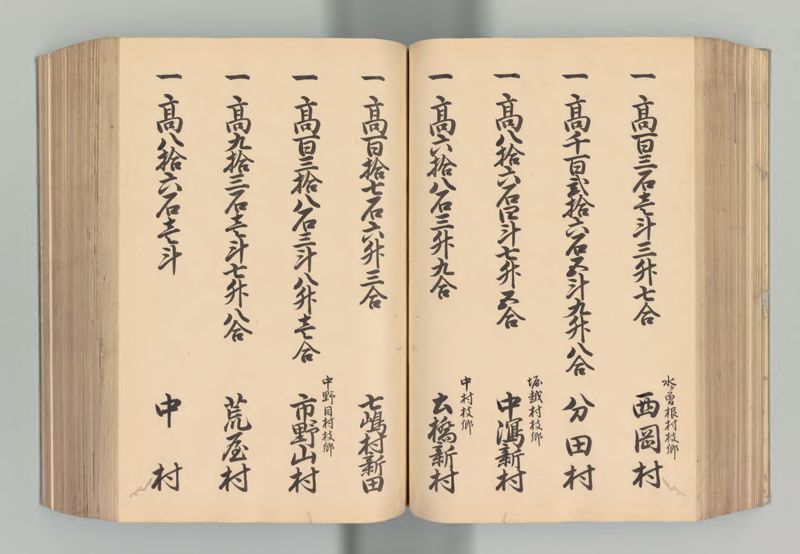 一 高百三石壱斗三升七合
水曽根村枝郷
西岡村
一 高千百弐拾六石五斗九升八合
分田村
一 高八拾六石四斗七升五合
堀越村枝郷
中潟新村
一 高六拾八石三升九合
中村枝郷
土橋新村
一 高百拾七石六升三合
七嶋村新田
一 高百三拾八石三斗八升壱合
中野目村枝郷
市野山村
一 高九拾三石壱斗七升八合
荒屋村
一 高八拾六石壱斗
中村